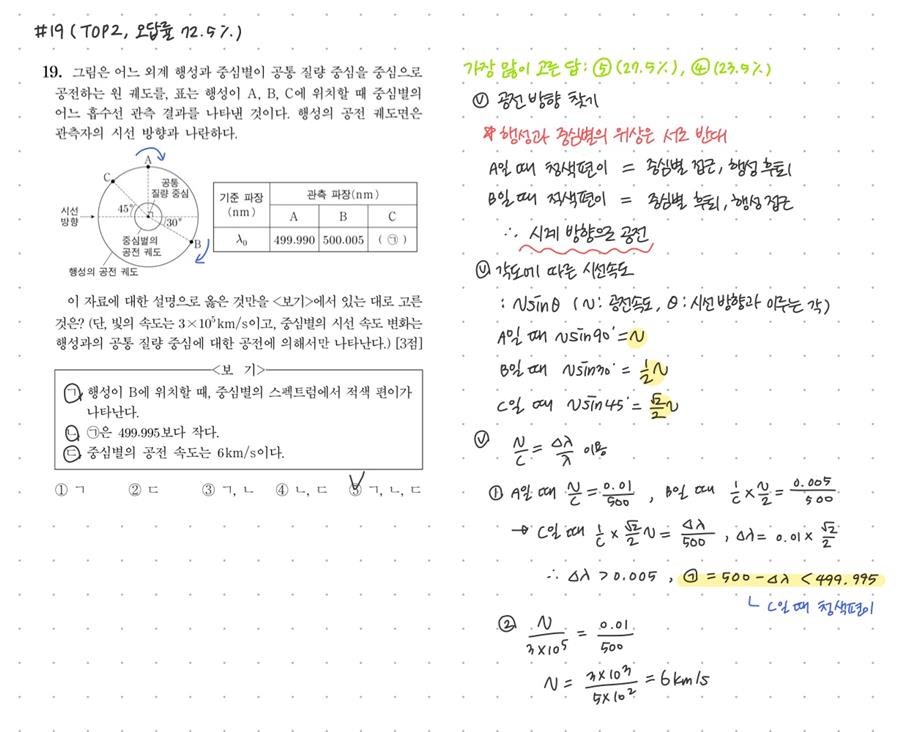 #19 (TOP2, 오답률 72.5%)
19. 그림은 어느 외계 행성과 중심별이 공통 질량 중심을 중심으로
공전하는 원 궤도를, 표는 행성이 A, B, C에 위치할 때 중심별의
어느 흡수선 관측 결과를 나타낸 것이다. 행성의 공전 궤도면은
관측자의 시선 방향과 나란하다.
A
C
공통
질량 중심
시선
방향
45°
30°
B
중심별의
공전 궤도
행성의 공전 궤도
기준 파장
(nm)
관측 파장(nm)
A B C
λ₀ 499.990 500.005 ( ㉠ )
이 자료에 대한 설명으로 옳은 것만을 <보기>에서 있는 대로 고른
것은? (단, 빛의 속도는 3×10⁵km/s이고, 중심별의 시선 속도 변화는
행성과의 공통 질량 중심에 대한 공전에 의해서만 나타난다.) [3점]
<보 기>
ㄱ. 행성이 B에 위치할 때, 중심별의 스펙트럼에서 적색 편이가
나타난다.
ㄴ. ㉠은 499.995보다 작다.
ㄷ. 중심별의 공전 속도는 6km/s이다.
① ㄱ ② ㄷ ③ ㄱ, ㄴ ④ ㄴ, ㄷ ⑤ ㄱ, ㄴ, ㄷ
가장 많이 고른 답: ⑤ (27.5%), ④ (23.5%)
공전 방향 찾기
* 행성과 중심별의 위상은 서로 반대
A일 때 청색편이 = 중심별 접근, 행성 후퇴
B일 때 적색편이 = 중심별 후퇴, 행성 접근
∴ 시계 방향으로 공전
각도에 따른 시선속도
: vsinθ (v: 공전속도, θ: 시선 방향과 이루는 각)
A일 때 vsin90° = v
B일 때 vsin30° = 1/2 v
C일 때 vsin45° = √2/2 v
v/c = Δλ/λ 이용
① A일 때 v/c = 0.01/500 , B일 때 1/c × v/2 = 0.005/500
→ C일 때 1/c × √2/2 v = Δλ/500 , Δλ = 0.01 × √2/2
∴ Δλ > 0.005 , ㉠ = 500 - Δλ < 499.995
ㄴ C일 때 청색편이
② v/3×10⁵ = 0.01/500
v = 3×10³/5×10² = 6km/s